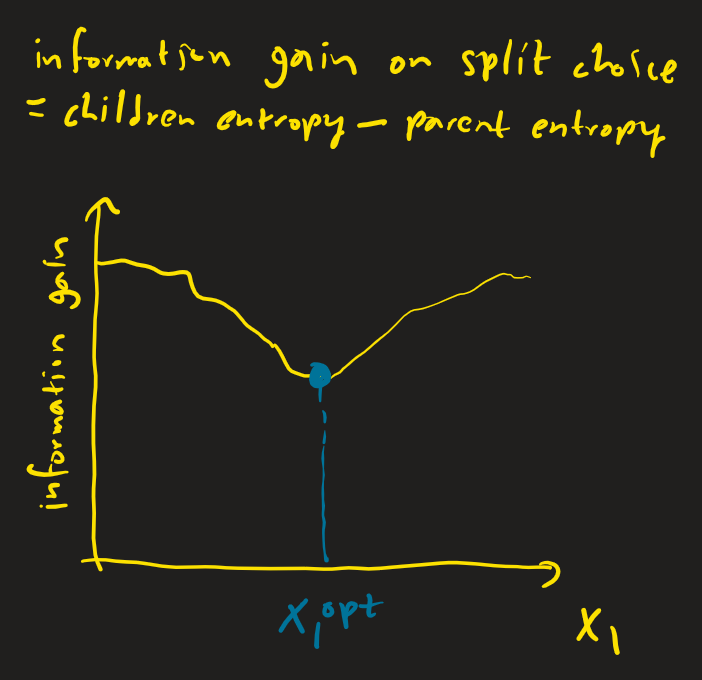 information gain on split choice
= children entropy - parent entropy
information gain
X₁opt
X₁